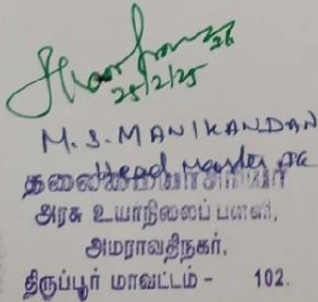 25/2/25
M. S. MANIKANDAN
Head Master
தலைமையாசிரியர்
அரசு உயர்நிலைப் பள்ளி,
அமராவதிநகர்,
திருப்பூர் மாவட்டம் - 102.